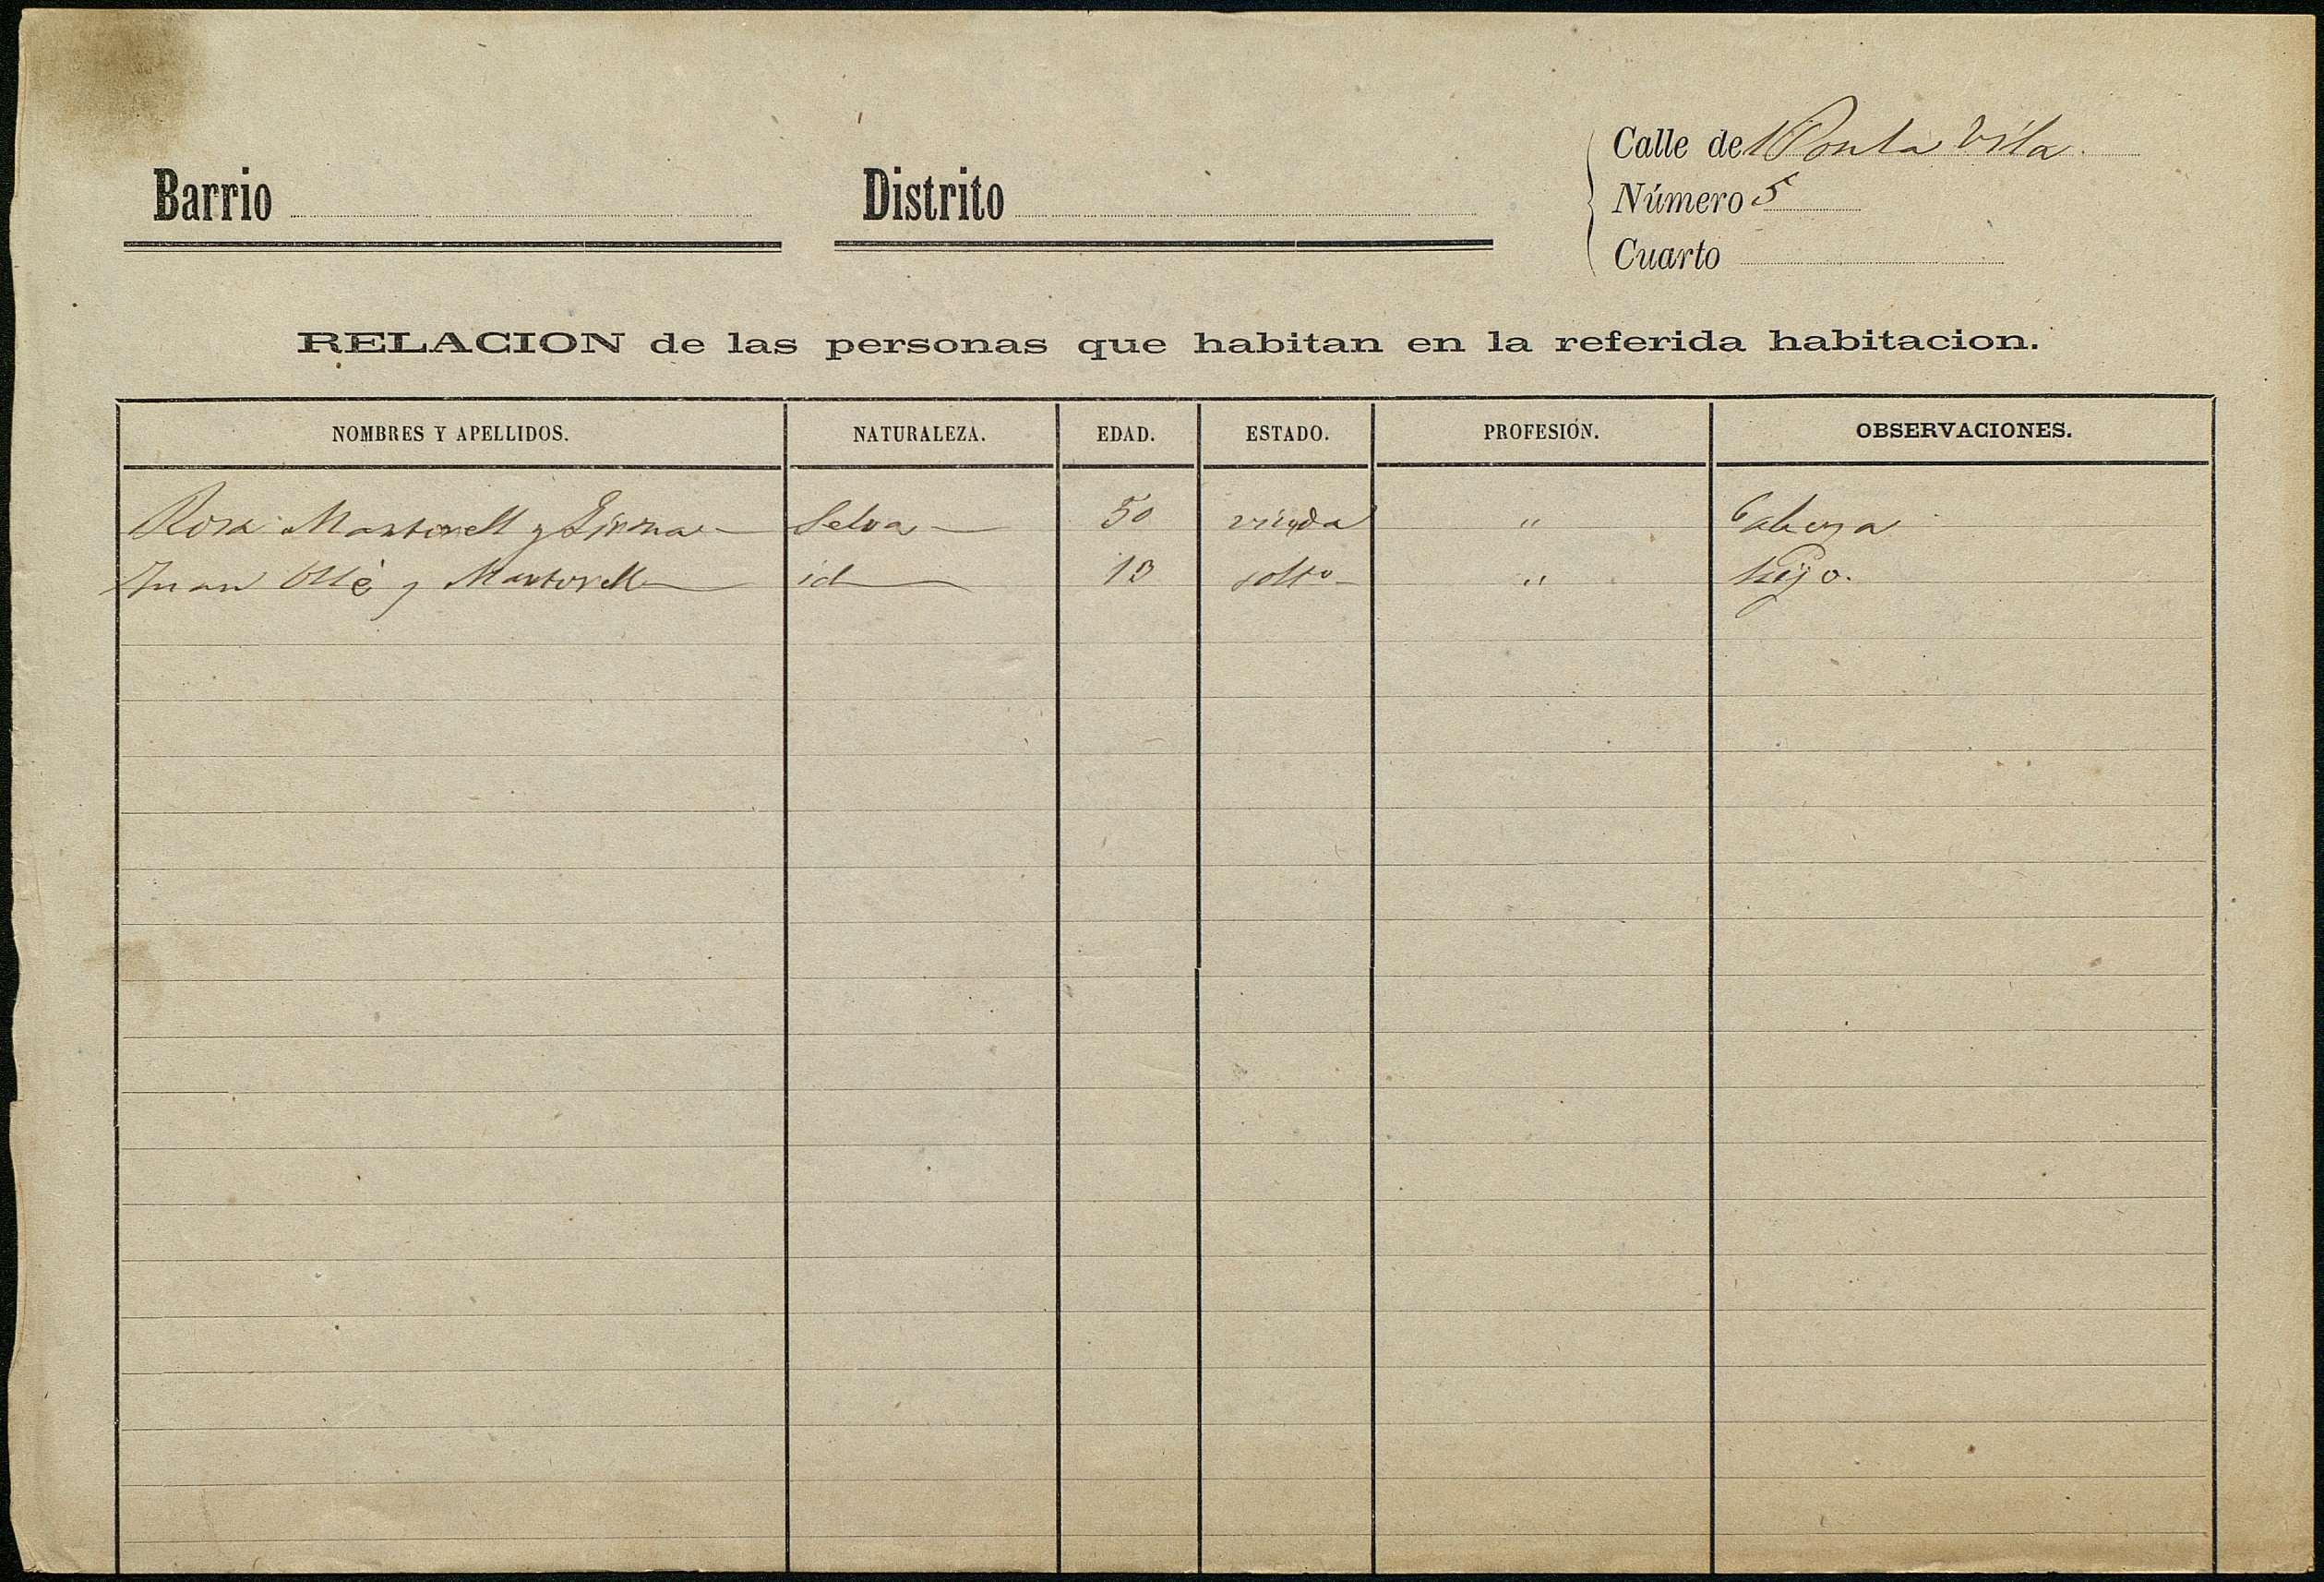 Calle de Ponta Vila.
Barrio Distrito Número 5
Cuarto
RELACION de las personas que habitan en la referida habitacion.
NOMBRES Y APELLIDOS. NATURALEZA. EDAD. ESTADO. PROFESIÓN. OBSERVACIONES.
Rosa Martorell y Selva 50 viuda " Cabeza
Juan Ollé y Martorell id 13 solto " hijo.